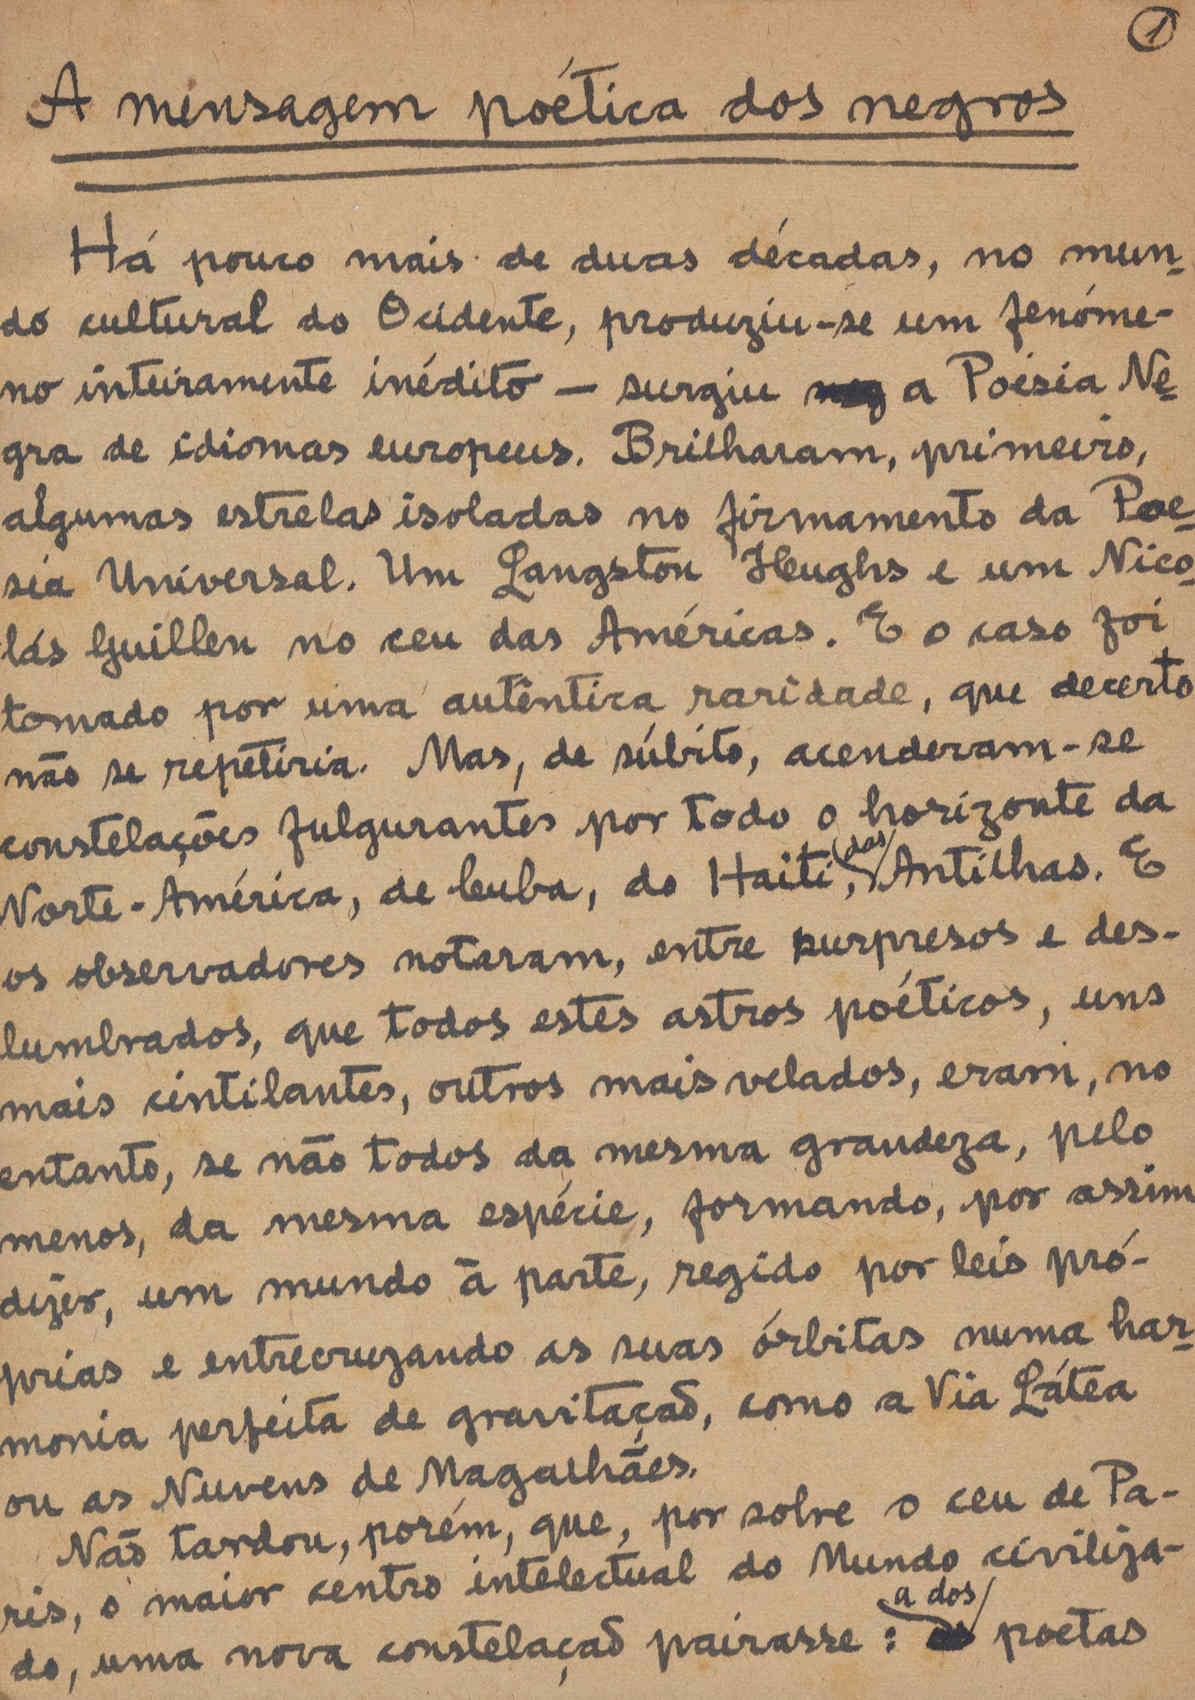 1
A mensagem poética dos negros
Há pouco mais de duas décadas, no mun-
do cultural do Ocidente, produziu-se um fenóme-
no inteiramente inédito — surgiu a Poesia Ne-
gra de idiomas europeus. Brilharam, primeiro,
algumas estrelas isoladas no firmamento da Poe-
sia Universal. Um Langston Heughs e um Nico-
lás Guillen no ceu das Américas. E o caso foi
tomado por uma autêntica raridade, que decerto
não se repetiria. Mas, de súbito, acenderam-se
constelações fulgurantes por todo o horizonte da
Norte-América, de Cuba, do Haiti, das Antilhas. E
os observadores notaram, entre surpresos e des-
lumbrados, que todos estes astros poéticos, uns
mais cintilantes, outros mais velados, eram, no
entanto, se não todos da mesma grandeza, pelo
menos, da mesma espécie, formando, por assim
dizer, um mundo à parte, regido por leis pró-
prias e entrecruzando as suas órbitas numa har-
monia perfeita de gravitação, como a Via Látea
ou as Nuvens de Magalhães.
Não tardou, porém, que, por sobre o ceu de Pa-
ris, o maior centro intelectual do Mundo civiliza-
do, uma nova constelação pairasse: a dos poetas